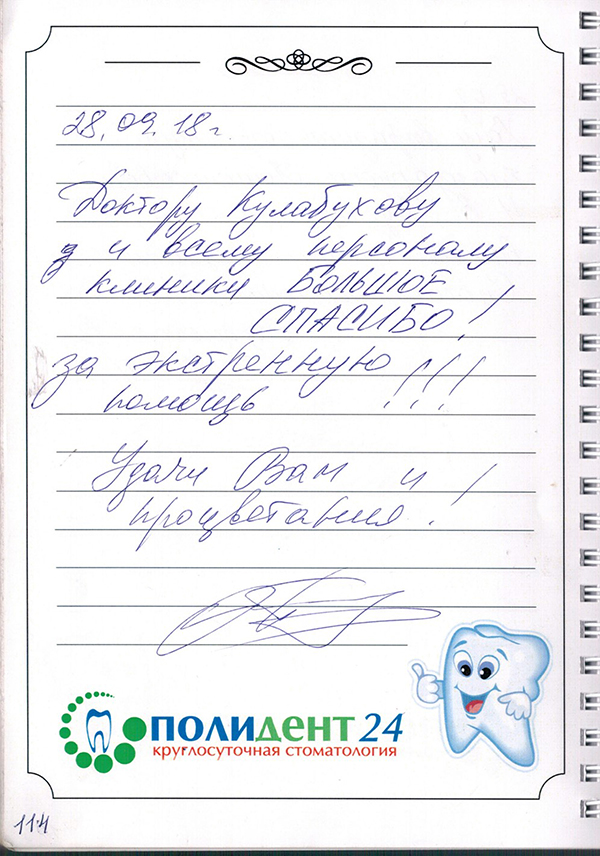 28.09.18г.
Доктору Кулабухову
и всему персоналу
клиники БОЛЬШОЕ
СПАСИБО!
за экстренную
помощь !!!
Удачи Вам и
процветания!
ПОЛИДЕНТ 24
круглосуточная стоматология
114